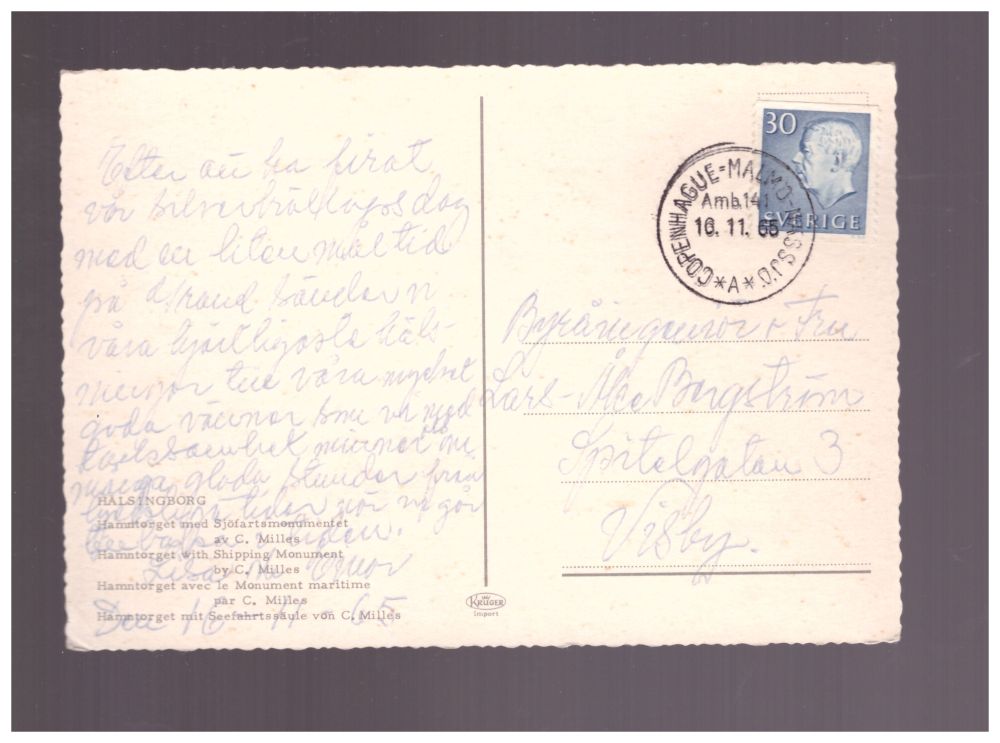 Efter att ha firat
vår silverbröllopsdag
med en liten måltid
på Strand sänder vi
våra hjärtligaste häls-
ningar till våra mycket
goda vänner som vi med
tacksamhet minnes
många glada stunder från
tider när vi går
tillbaka i tiden.
Den 16-11-65
HÄLSINGBORG
Hamntorget med Sjöfartsmonumentet
av C. Milles
Hamntorget with Shipping Monument
by C. Milles
Hamntorget avec le Monument maritime
par C. Milles
Hamntorget mit Seefahrtssäule von C. Milles
KRÜGER
import
30
SVERIGE
COPENHAGUE=MALMÖ-NÄSSJÖ.
Amb.141
16.11.65
*A*
Byråingenjör o Fru
Lars-Åke Bergström
Spitalgatan 3
Visby.